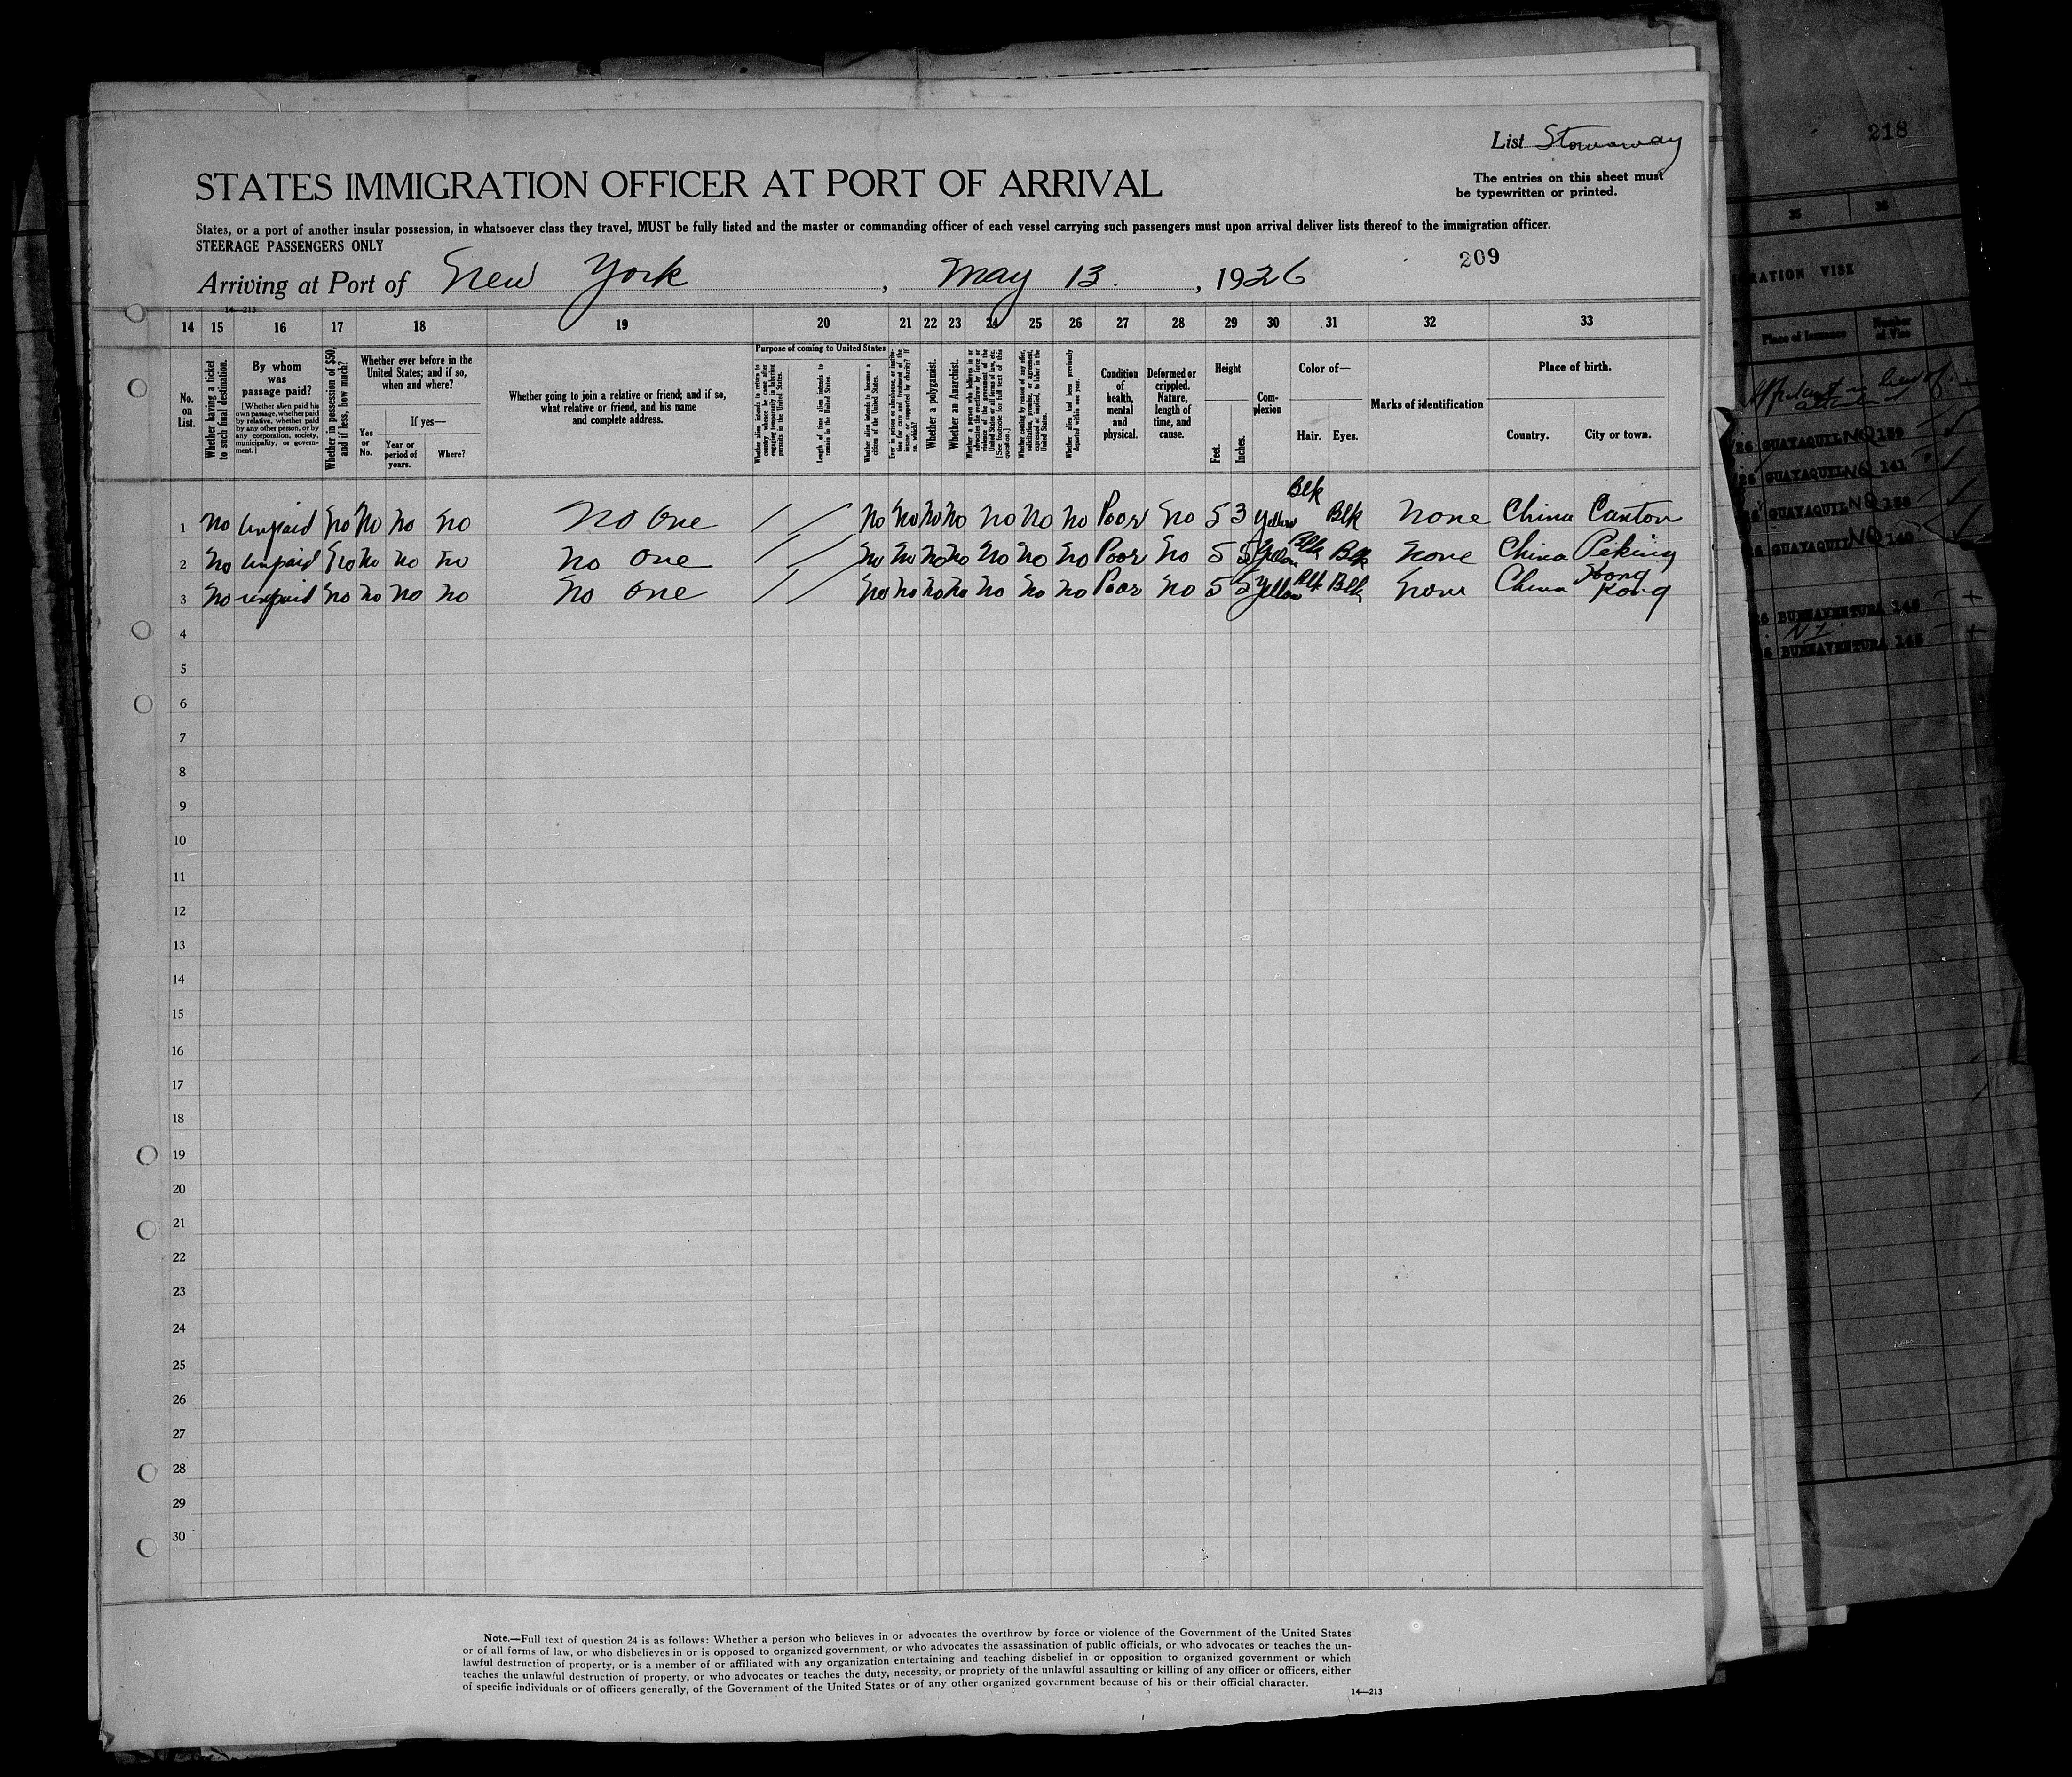 218
List Stowaway
STATES IMMIGRATION OFFICER AT PORT OF ARRIVAL
The entries on this sheet must
be typewritten or printed.
States, or a port of another insular possession, in whatsoever class they travel, MUST be fully listed and the master or commanding officer of each vessel carrying such passengers must upon arrival deliver lists thereof to the immigration officer.
STEERAGE PASSENGERS ONLY
209
Arriving at Port of New York, May 13., 1926
14—213
14 15 16 17 18 19 20 21 22 23 24 25 26 27 28 29 30 31 32 33
No. on List.
Whether having a ticket to such final destination.
By whom was passage paid?
[Whether alien paid his own passage, whether paid by relative, whether paid by any other person, or by any corporation, society, municipality, or government.]
Whether in possession of $50, and if less, how much?
Whether ever before in the United States; and if so, when and where?
Yes or No.
If yes—
Year or period of years.
Where?
Whether going to join a relative or friend; and if so, what relative or friend, and his name and complete address.
Purpose of coming to United States
Whether alien intends to return to country whence he came after engaging temporarily in laboring pursuits in the United States.
Length of time alien intends to remain in the United States.
Whether alien intends to become a citizen of the United States.
Ever in prison or almshouse, or institution for care and treatment of the insane, or supported by charity? If so, which?
Whether a polygamist.
Whether an Anarchist.
Whether a person who believes in or advocates the overthrow by force or violence of the Government of the United States or all forms of law, etc. [See footnote for full text of this question.]
Whether coming by reason of any offer, solicitation, promise, or agreement, expressed or implied, to labor in the United States.
Whether alien had been previously deported within one year.
Condition of health, mental and physical.
Deformed or crippled. Nature, length of time, and cause.
Height
Feet. Inches.
Complexion
Color of—
Hair. Eyes.
Marks of identification
Place of birth.
Country. City or town.
1 No Unpaid No No No No No One / / No No No No No No No Poor No 5 3 Yellow Blk Blk None China Canton
2 No Unpaid No No No No No One / / No No No No No No No Poor No 5 5 Yellow Blk Blk None China Peking
3 No unpaid No No No No No One / / No No No No No No No Poor No 5 2 Yellow Blk Blk None China Hong Kong
4
5
6
7
8
9
10
11
12
13
14
15
16
17
18
19
20
21
22
23
24
25
26
27
28
29
30
Note.—Full text of question 24 is as follows: Whether a person who believes in or advocates the overthrow by force or violence of the Government of the United States
or of all forms of law, or who disbelieves in or is opposed to organized government, or who advocates the assassination of public officials, or who advocates or teaches the un-
lawful destruction of property, or is a member of or affiliated with any organization entertaining and teaching disbelief in or opposition to organized government or which
teaches the unlawful destruction of property, or who advocates or teaches the duty, necessity, or propriety of the unlawful assaulting or killing of any officer or officers, either
of specific individuals or of officers generally, of the Government of the United States or of any other organized government because of his or their official character.
14—213
35 36
RATION VISE
Place of Issuance
Number of Visa
in lieu of
26 GUAYAQUIL NQ 139
26 GUAYAQUIL NQ 141
GUAYAQUIL NQ 138
26 GUAYAQUIL NQ 140
6 BUENAVENTURA 145
6 BUENAVENTURA 145